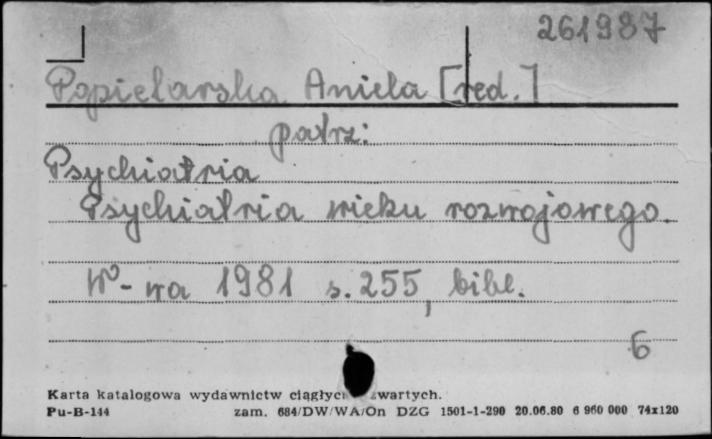 261987
Popielarska Aniela [red.]
patrz:
Psychiatria
Psychiatria wieku rozwojowego.
W-wa 1981 s. 255, bibl.
6
Karta katalogowa wydawnictw ciągłych zwartych.
Pu-B-144 zam. 684/DW/WA/On DZG 1501-1-290 20.06.80 6 960 000 74x120